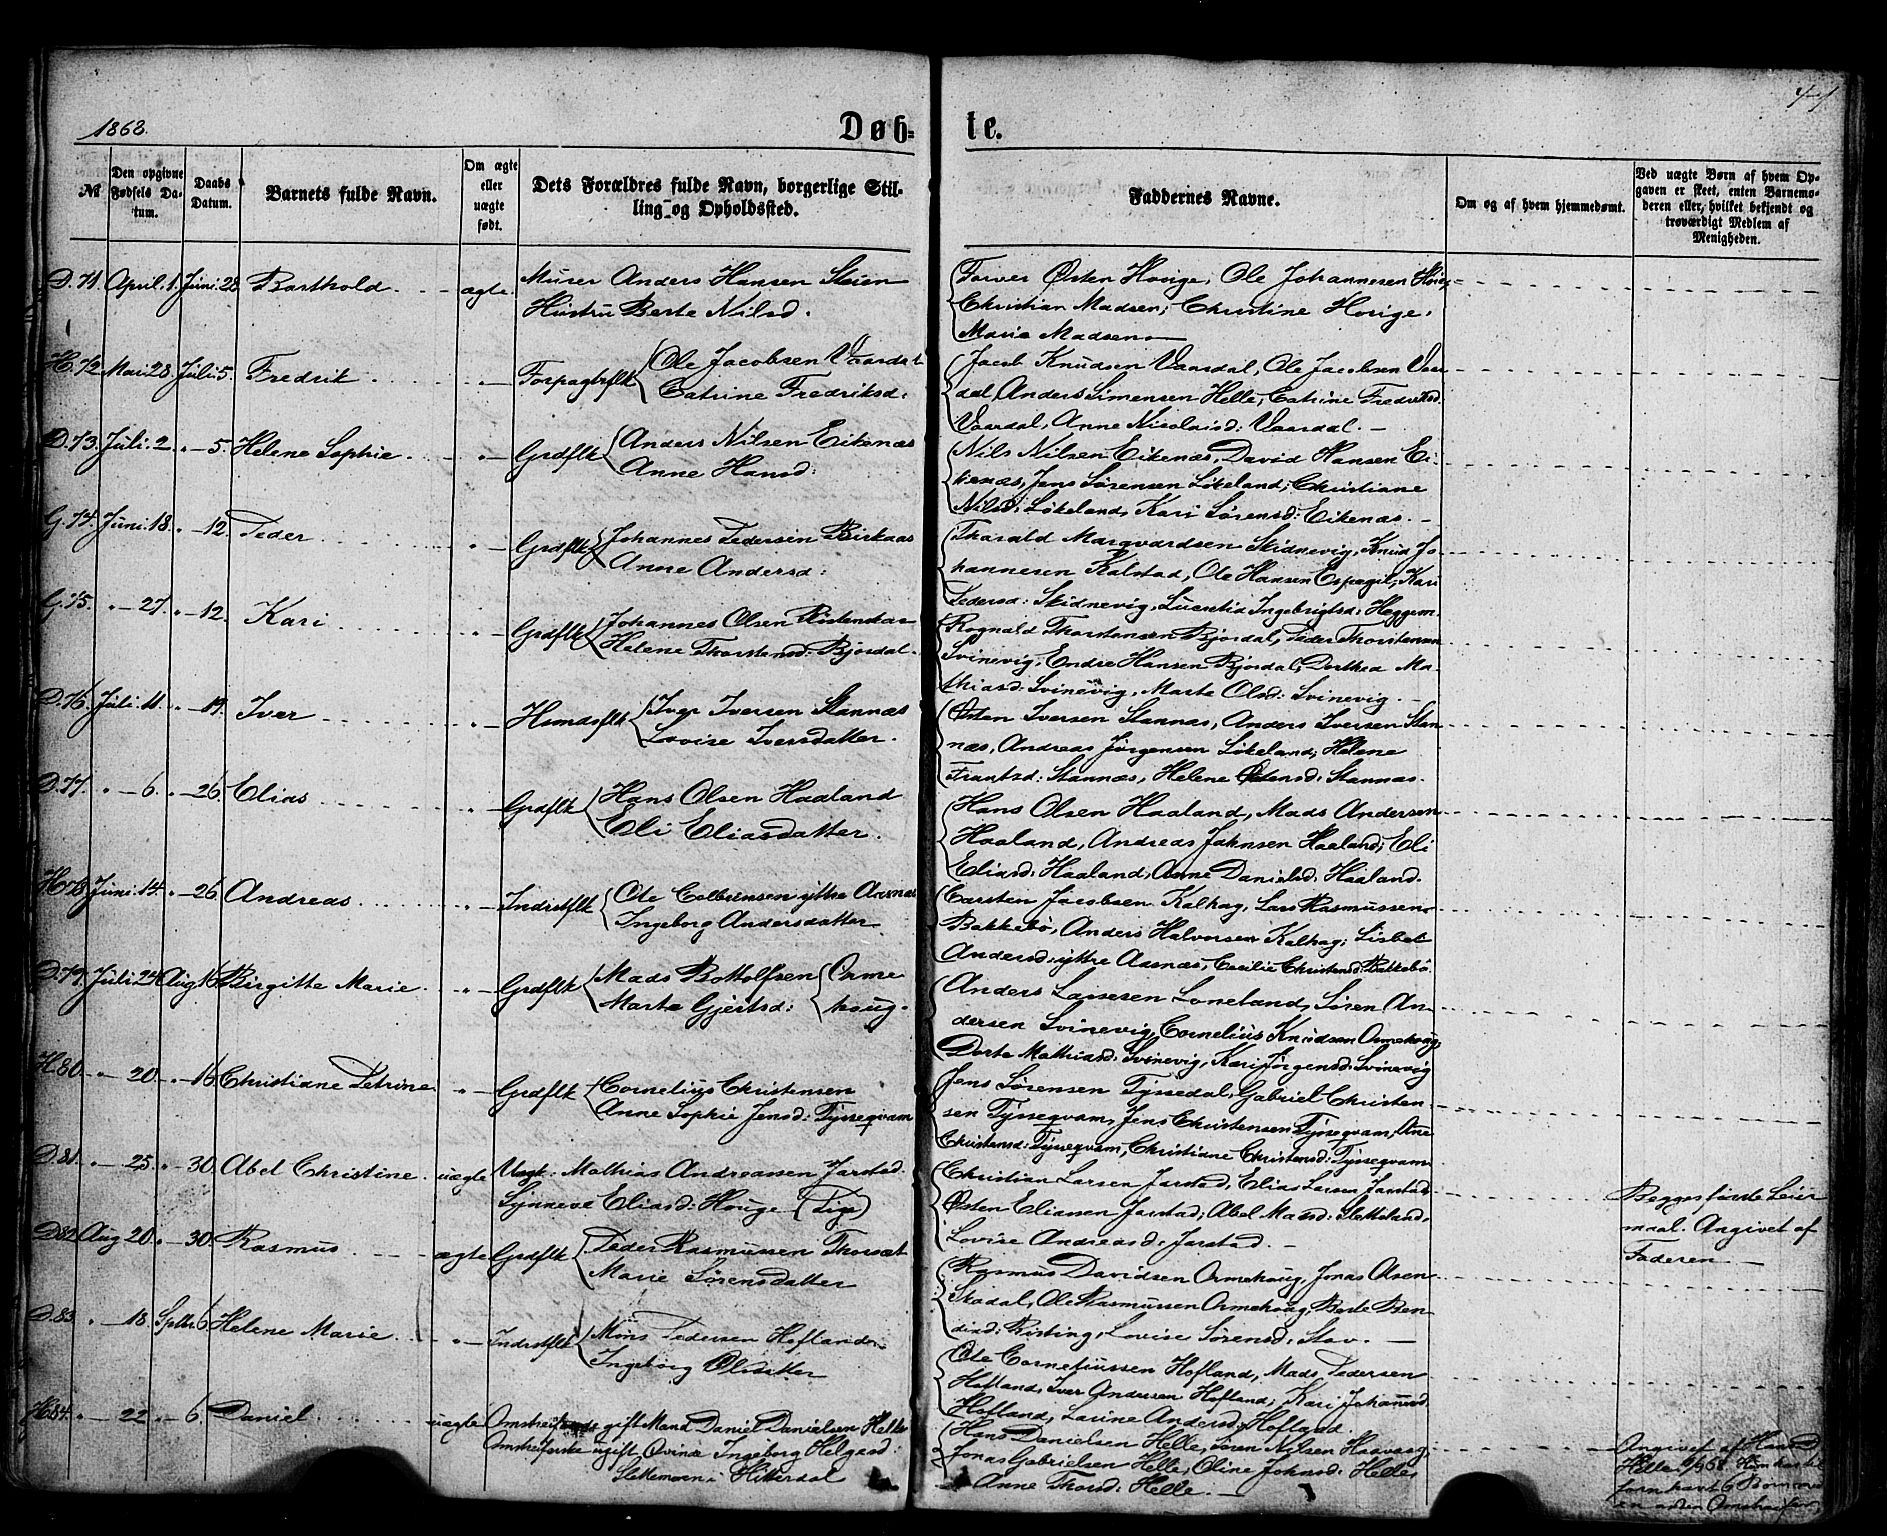 1868.
Døb=
te.
№
Den opgivne Fødsels Datum.
Daabs Datum.
Barnets fulde Navn.
Om ægte eller uægte født.
Dets Forældres fulde Navn, borgerlige Stilling og Opholdssted.
Faddernes Navne.
Om og af hvem hjemmedøbt.
Ved uægte Børn af hvem Opgaven er skeet, enten Barnemoderen eller, hvilket bekjendt og troværdigt Medlem af Menigheden.
D. 71. April. 1. Juni. 28 Barthold. ægte. Murer Anders Hansen Steien
Hustru Berte Nilsd.
Farver Østen Hovige, Ole Johannesen
Christian Madsen; Christine Hovige,
Marie Madsen
H. 72 Mai 28. Juli 5. Fredrik. " Forpagtrflk Ole Jacobsen Vaardal
Catrine Fredriksd:
Jacob Knudsen Vaardal, Ole Jacobsen Vaar
dal, Anders Simensen Helle, Catrine Fredriksd.
Vaardal, Anne Nicolaisd: Vaardal.
D. 73. Juli. 2. " 5. Helene Sophie. " Grdflk Anders Nilsen Eikenæs
Anne Hansd:
Nils Nilsen Eikenæs, David Hansen Ei-
kenæs, Jens Sørensen Løkeland; Christiane
Nilsd: Løkeland, Kari Sørensd: Eikenæs.
G. 74. Juni. 18. " 12. Peder " Grdflk Johannes Pedersen Birkaas
Anne Andersd:
Tharald Marqvardsen Skidnevig, Knud Jo-
hannesen Kalstad, Ole Hansen Espegil, Kari
Pedersd: Skidnevig, Lucretia Ingebrigtsd: Heggem.
G. 75. " 27. " 12. Kari " Grdflk Johannes Olsen
Helene Thorstensd: Bjordal.
Rognald Thorstensen Bjordal, Peder Thorstensen
Svinevig, Endre Hansen Bjordal, Dorthea Ma-
thiasd: Svinevig, Marte Olsd: Svinevig.
D. 76. Juli. 11. " 19. Iver " Husmdsflk Iver Iversen Stannæs
Lovise Iversdatter.
Østen Iversen Stannæs, Anders Iversen Stan-
næs, Andreas Jørgensen Løkeland; Helene
Frantsd: Stannæs, Helene Østensd: Stannæs.
D. 77. " 6. " 26. Elias " Grdflk Hans Olsen Haaland
Eli Eliasdatter.
Hans Olsen Haaland, Mads Andersen
Haaland, Andreas Johnsen Haaland; Eli
Eliasd: Haaland, Anne Danielsd: Haaland.
H. 78. Juni. 14. " 26. Andreas " Indrstflk Ole Colbensen yttre Aasnæs
Ingeborg Andersdatter
Carsten Jacobsen Kalhag, Lars Rasmussen
Bakkebø, Anders Halvorsen Kalhag; Lisbet
Andersd: yttre Aasnæs, Cecilie Christensd: Bakkebø.
D. 79. Juli 24. Aug 16. Birgitte Marie. " Grdflk Mads Bottolfsen
Marte Gjertsd: Orme
houg.
Anders Lassesen Loneland, Søren An-
dersen Svinevig, Cornelius Knudsen Ormehoug,
Dorte Mathiasd: Svinevig, Kari Jørgensd: Svinevig
H. 80. " 20. " 16 Christiane Petrine " Grdflk Cornelius Christensen
Anne Sophie Jensd: Tyssegvam
Jens Sørensen Tyssedal, Gabriel Christen-
sen Tysseqvam, Jens Christensen Tysseqvam, Ane
Christensd: Tysseqvam, Christiane Christensd: Tysseqvam
D. 81. " 25. " 30. Abel Christine. uægte Ungk: Mathias Andreassen Jarstad
Synneve Eliasd: Houge (Pige)
Christian Larsen Jarstad, Elias Larsen Jarstad
Østen Eliasen Jarstad; Abel Madsd: Sletteland,
Lovise Andreasd: Jarstad.
Begges første Leier
maal. Angivet af
Faderen
D. 82 Aug 20. " 30. Rasmus ægte Grdflk Peder Rasmussen Thorsæt
Marie Sørensdatter
Rasmus Davidsen Ormehoug, Jonas Olsen
Skadal, Ole Rasmussen Ormehoug, Berte Ben-
dixd: Risting, Lovise Sørensd: Stav.
D. 83. " 18. Septbr. 6 Helene Marie " Indrstflk Mons Pedersen Hofland
Ingeborg Olsdatter
Ole Corneliussen Hofland, Mads Pedersen
Hofland, Iver Andersen Hofland; Kari Johannesd
Hofland, Larine Andersd: Hofland
H. 84. " 22 " 6. Daniel. uægte Omstreifende gift Mand Daniel Danielsen Helle
Omstreiferske ugift Qvinde Ingeborg Helgesd:
Slettemoen i Hitterdal
Hans Danielsen Helle, Søren Nilsen Haavaag,
Jonas Gabrielsen Helle; Oline Johnsd: Helle,
Anne Thorsd: Helle.
Angivet af
Helle
forn havt 6 Børn
en anden